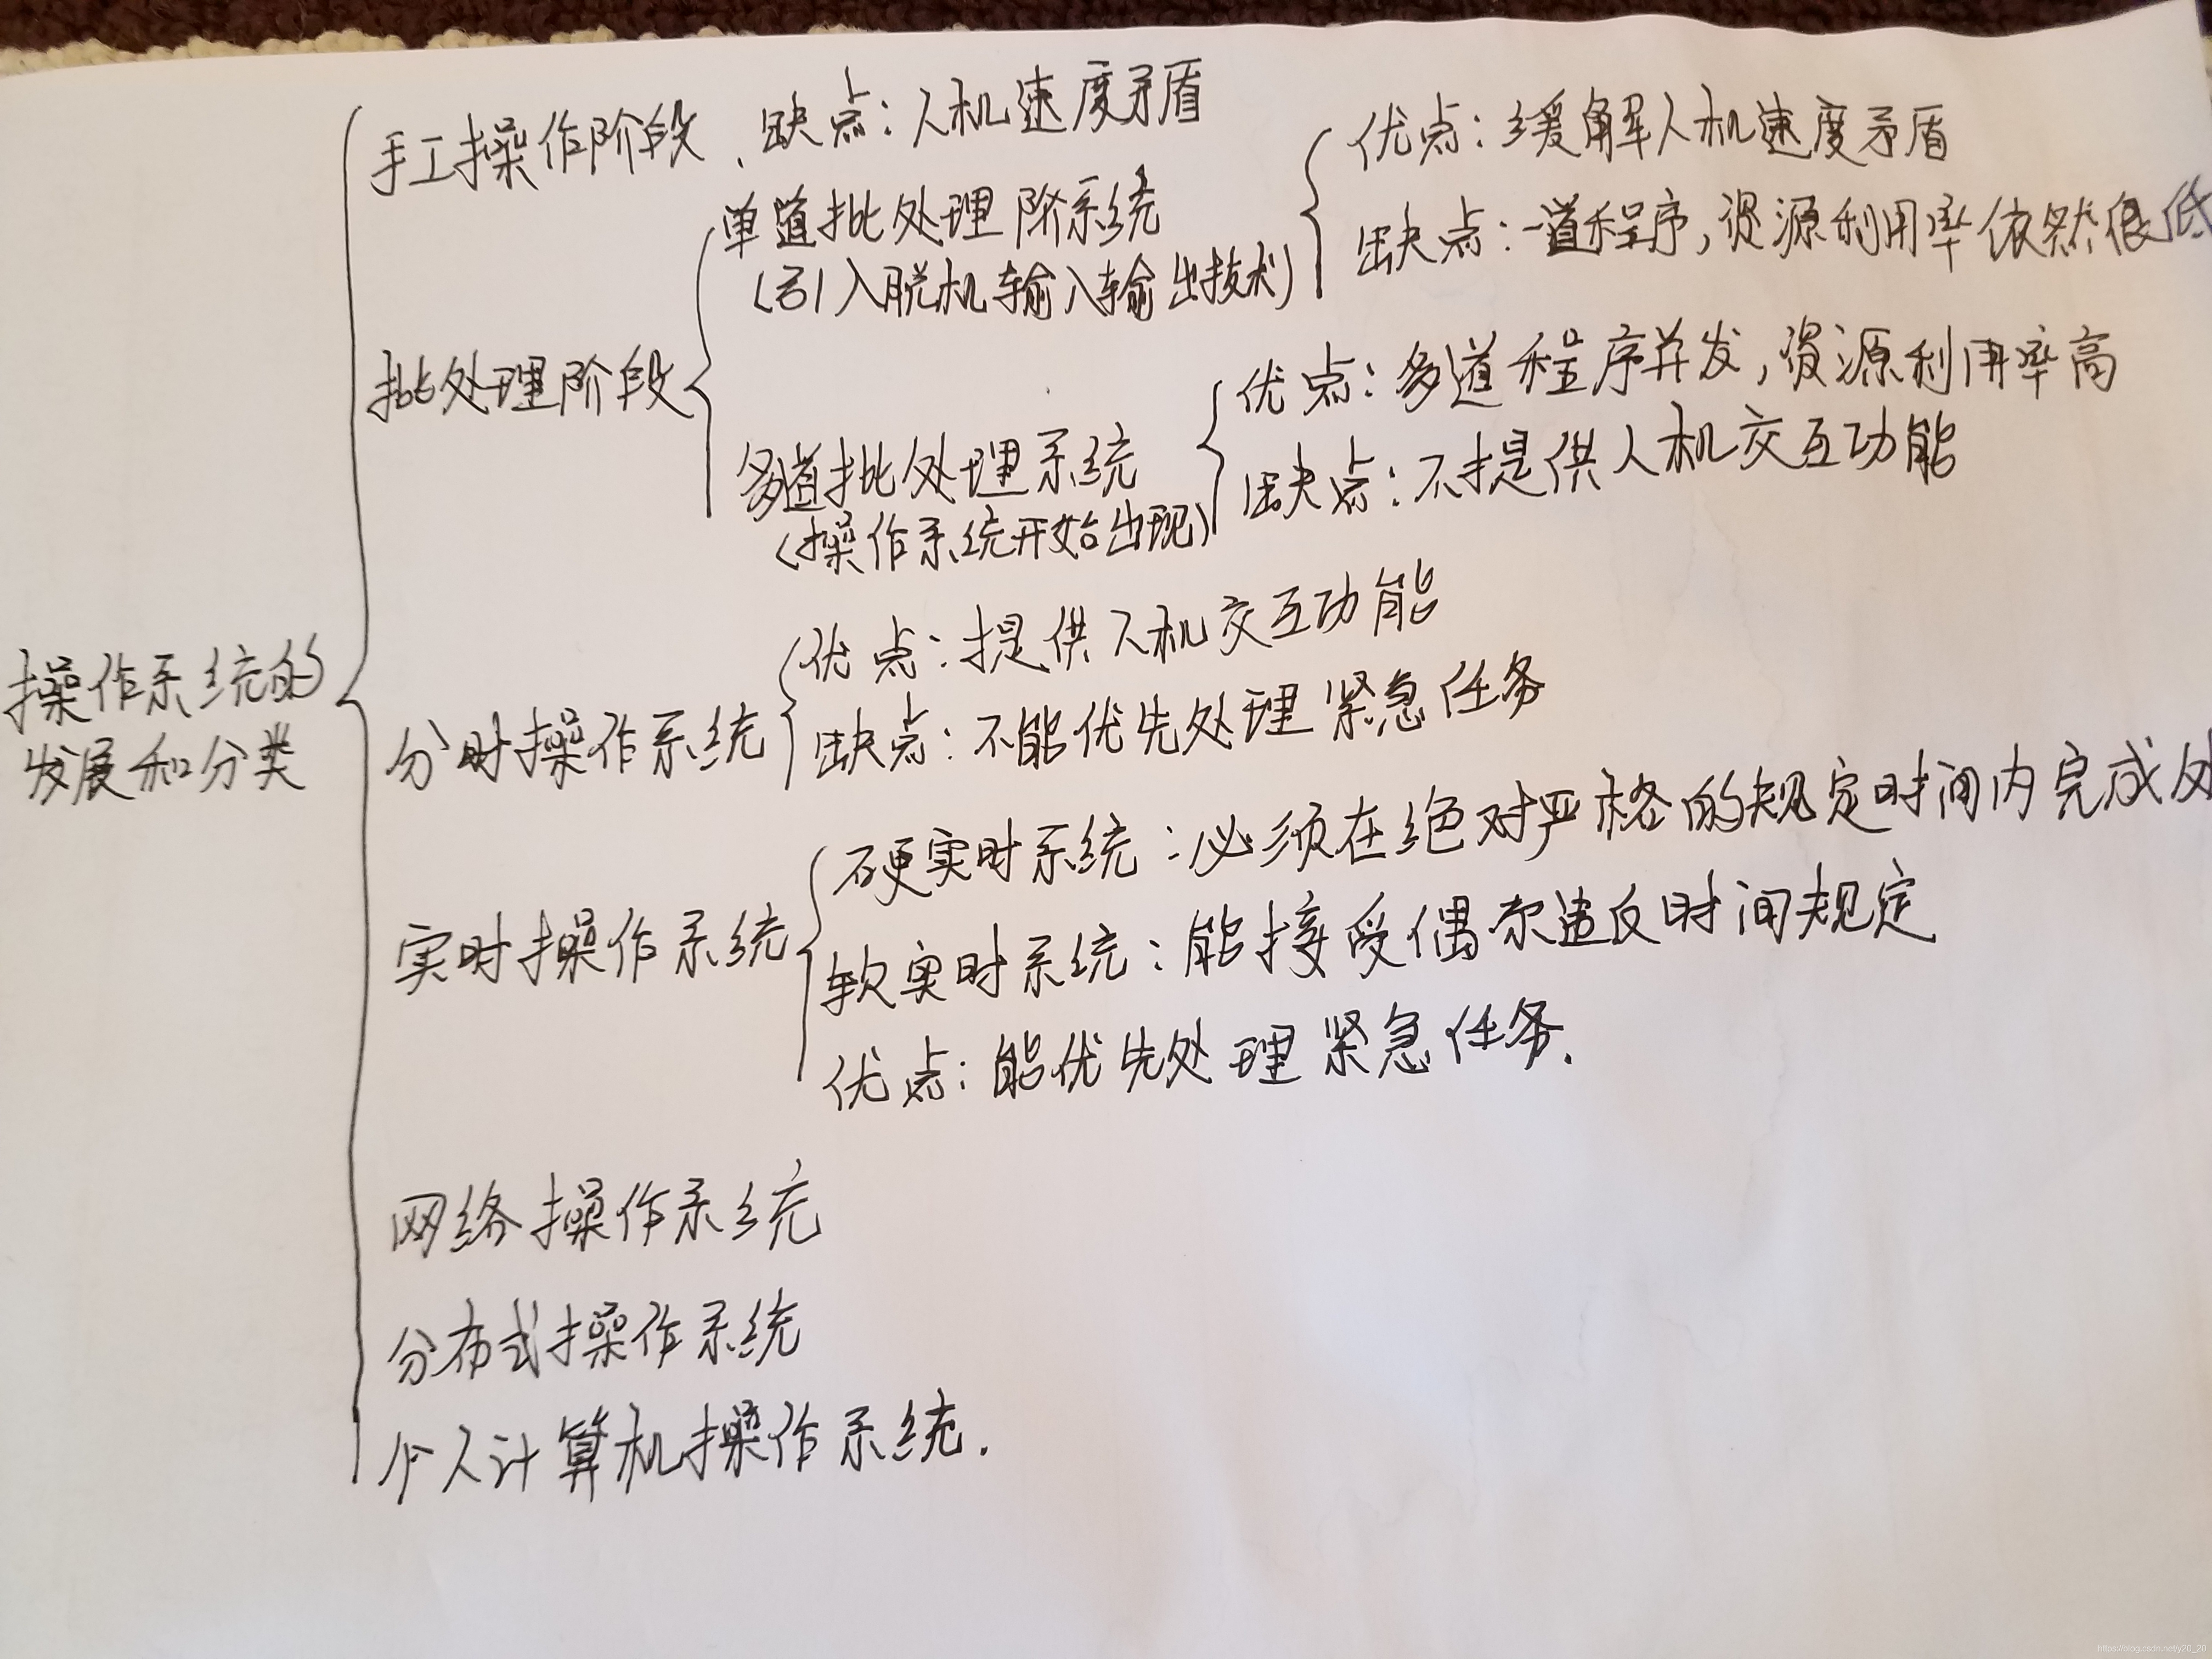 手工操作阶段、缺点：人机速度矛盾
单道批处理阶系统
(引入脱机输入输出技术)
优点：缓解人机速度矛盾
缺点：一道程序，资源利用率依然很低
批处理阶段
多道批处理系统
(操作系统开始出现)
优点：多道程序并发，资源利用率高
缺点：不提供人机交互功能
操作系统的
发展和分类
分时操作系统
优点：提供人机交互功能
缺点：不能优先处理紧急任务
实时操作系统
硬实时系统：必须在绝对严格的规定时间内完成
软实时系统：能接受偶尔违反时间规定
优点：能优先处理紧急任务.
网络操作系统
分布式操作系统
个人计算机操作系统.
https://blog.csdn.net/y20_20